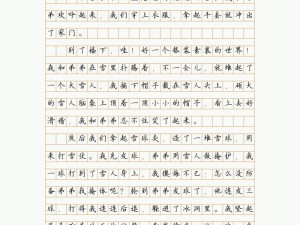 弟欢呼起来,我们穿上衣服,拿起手套就冲出
了家门。
到了楼下,哇!好一个银装素裹的世界!
我和弟弟在雪里扑腾着,不一会儿,就堆起了
一个大雪人,我摘下帽子戴在雪人头上,硕大
的雪人脑袋上顶着一顶小小的帽子,看上去好
滑稽,我和弟弟忍不住笑了起来。
然后我们拿起雪球夹,造了一堆雪球,用
来打雪仗。我先发球,弟弟用雪人做掩护,我一
球打到了雪人身上,我懊悔不已:怎么没防
备弟弟找掩体呢?轮到弟弟发球了,他连发三
球,打得我连连后退,躲进了冰洞里。我竖起